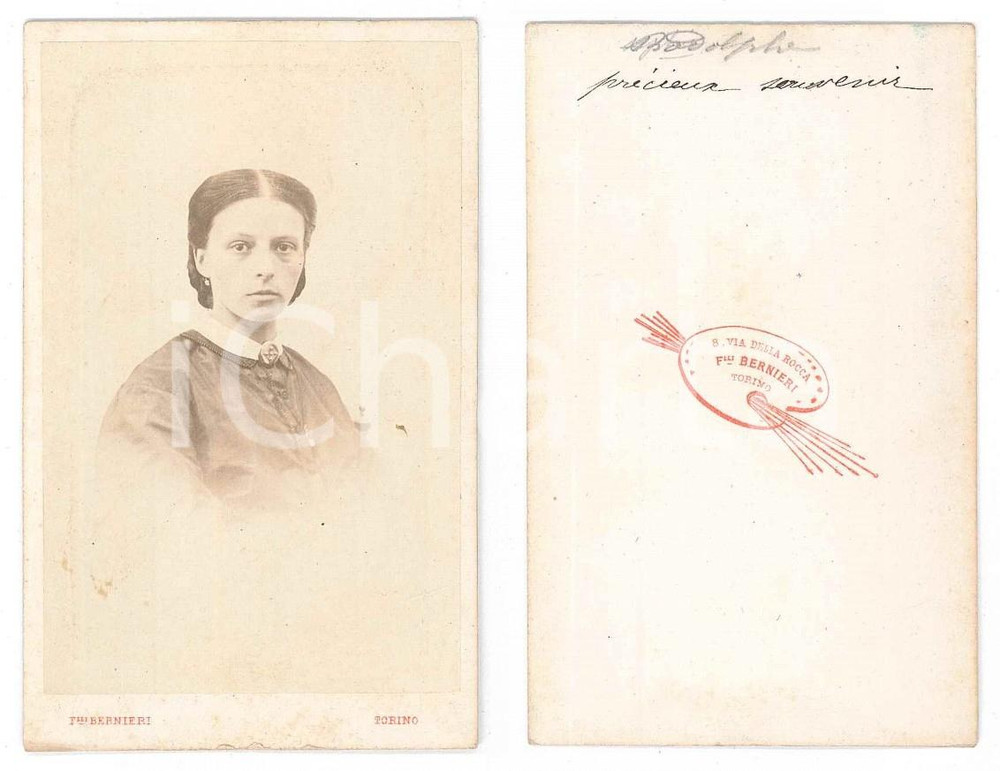 Fᴸᴸᴵ BERNIERI TORINO
Rodolphe
précieux souvenir
8. VIA DELLA ROCCA
Fᴸᴸᴵ BERNIERI
TORINO